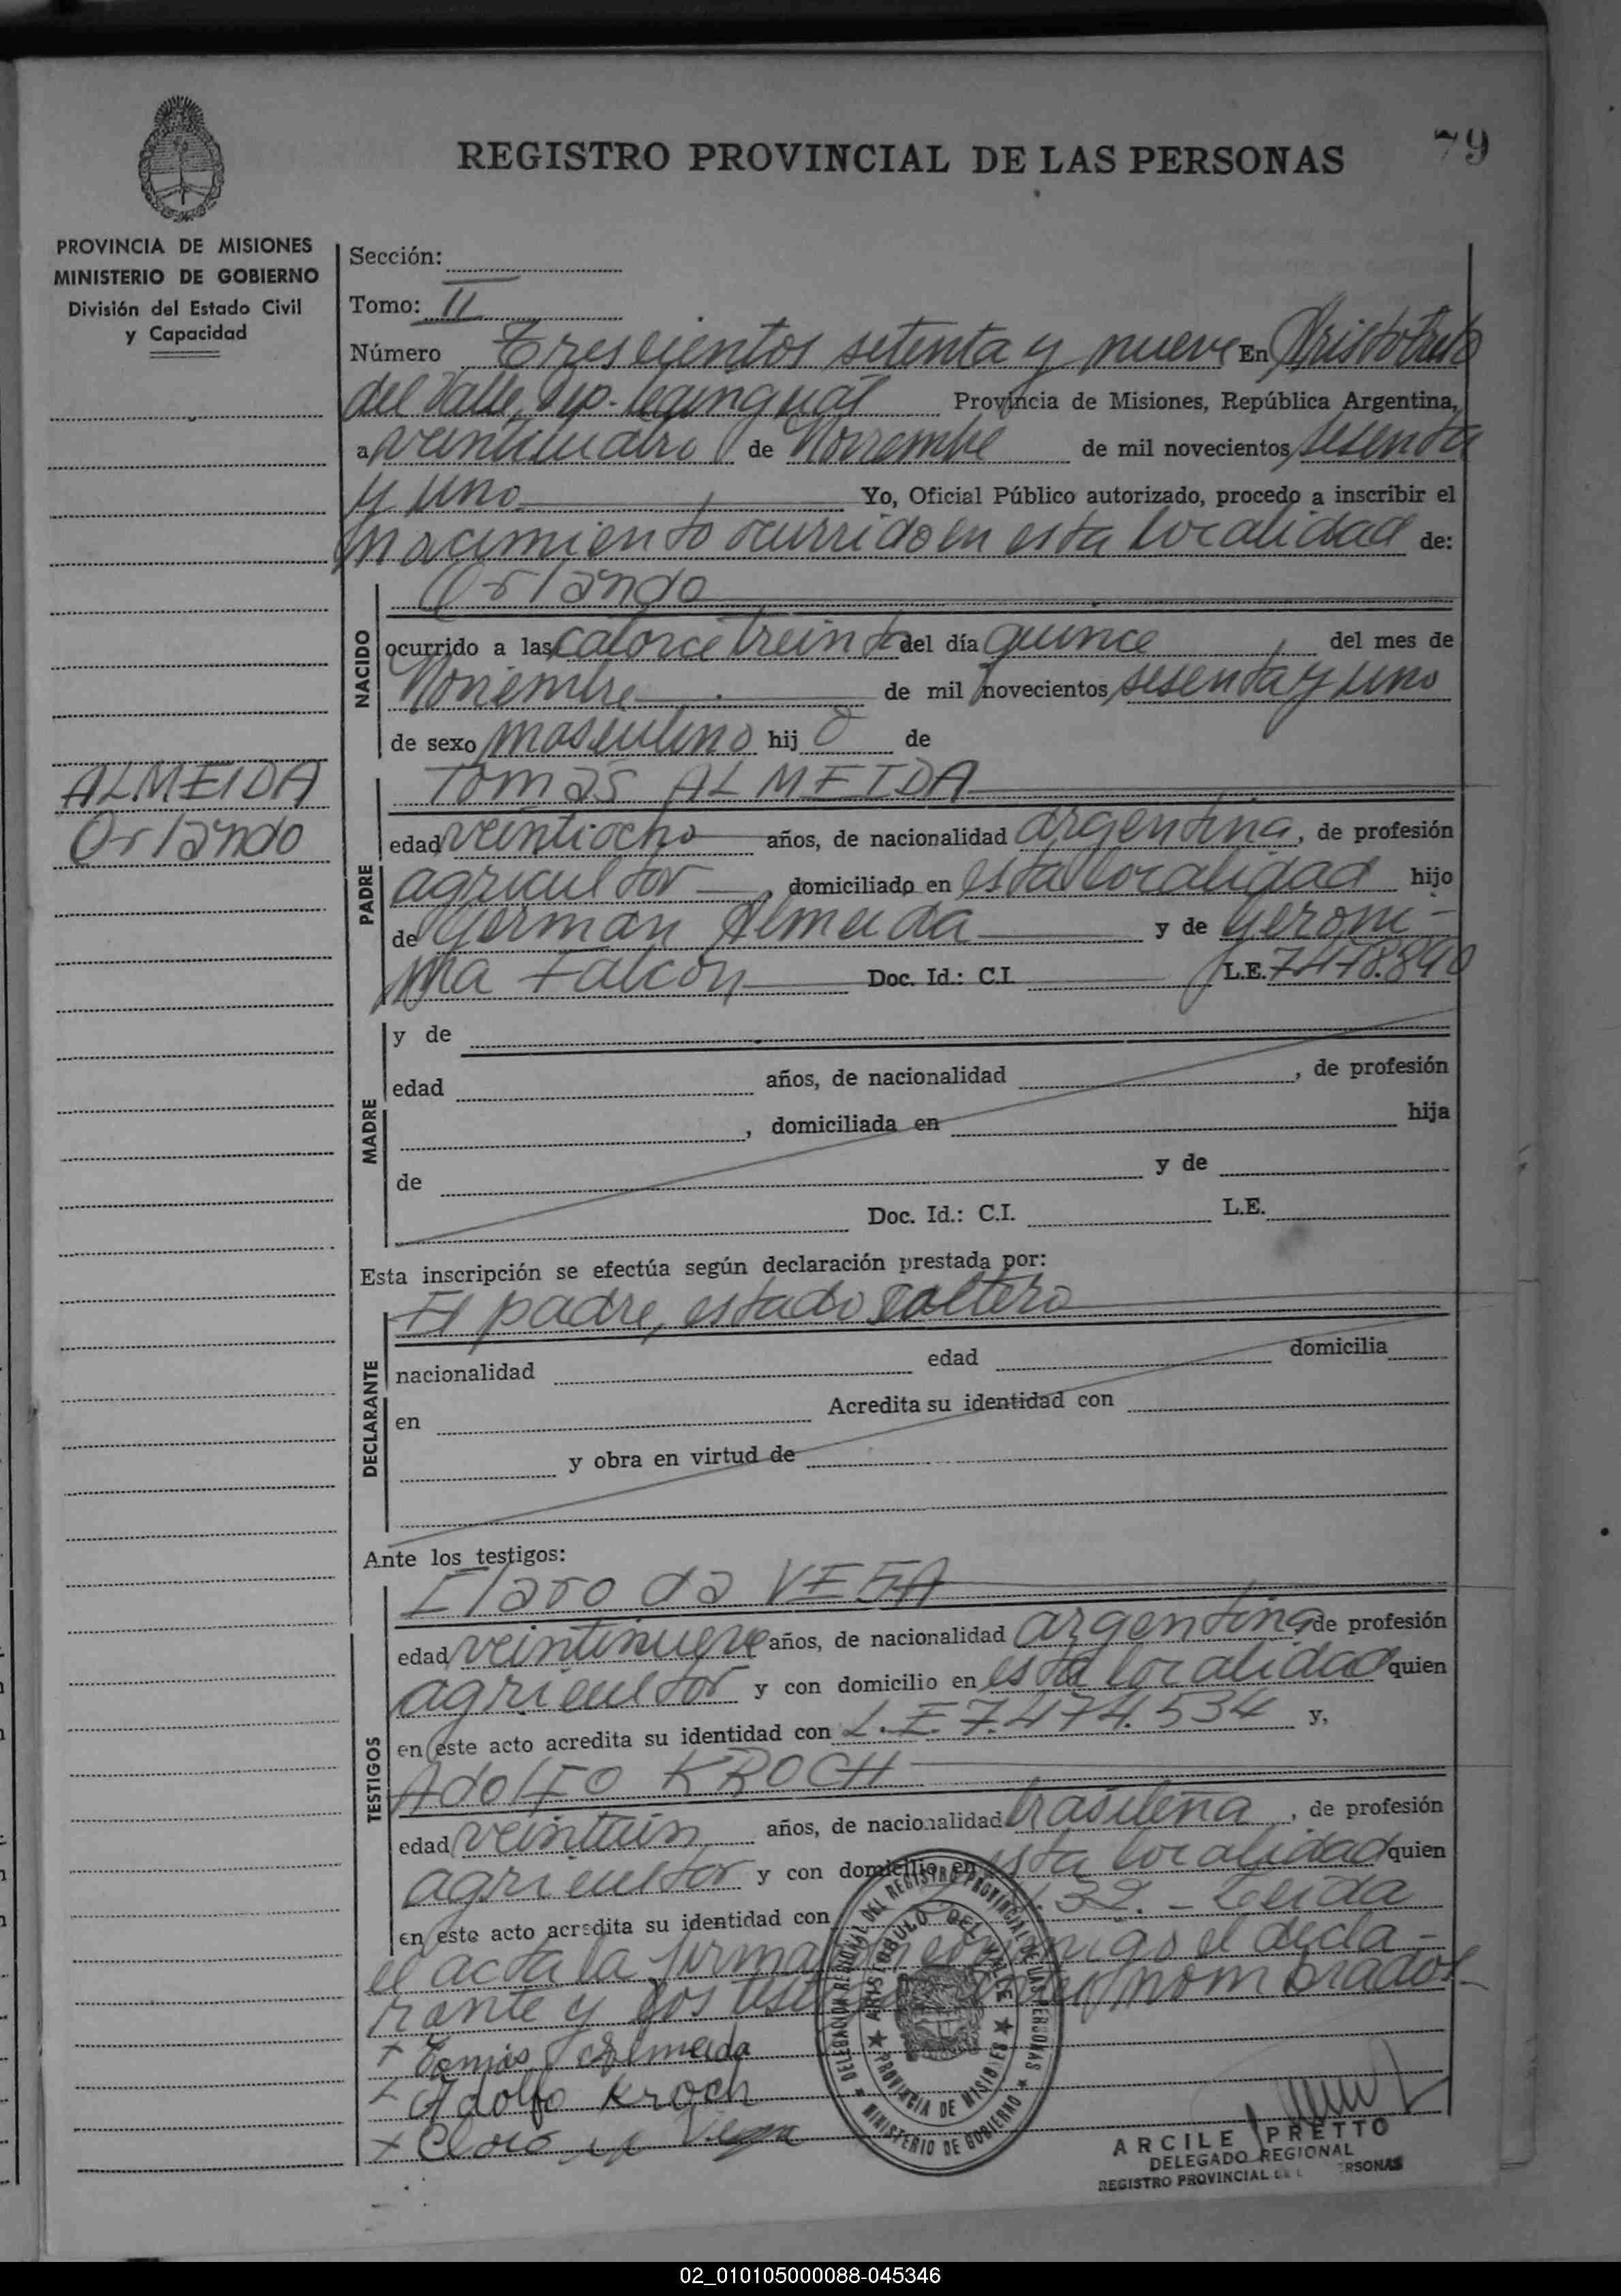 79
REGISTRO PROVINCIAL DE LAS PERSONAS
PROVINCIA DE MISIONES
MINISTERIO DE GOBIERNO
División del Estado Civil
y Capacidad
Sección:
Tomo: II
Número Trescientos setenta y nueve En Aristobulo
del Valle, Dep. Cainguás Provincia de Misiones, República Argentina,
a veinticuatro de Noviembre de mil novecientos sesenta
y uno Yo, Oficial Público autorizado, procedo a inscribir el
nacimiento ocurrido en esta localidad de:
NACIDO
Orlando
ocurrido a las catorce treinta del día quince del mes de
Noviembre de mil novecientos sesenta y uno
de sexo masculino hij o de
ALMEIDA
Orlando
PADRE
Tomás ALMEIDA
edad veintiocho años, de nacionalidad argentina, de profesión
agricultor, domiciliado en esta localidad hijo
de Germán Almeida y de Geroni-
ma Falcón Doc. Id.: C.I. L.E. 7.478.890
MADRE
y de
edad años, de nacionalidad , de profesión
, domiciliada en hija
de y de
Doc. Id.: C.I. L.E.
Esta inscripción se efectúa según declaración prestada por:
DECLARANTE
El padre, estado soltero
nacionalidad edad domicilia
en Acredita su identidad con
y obra en virtud de
Ante los testigos:
TESTIGOS
Claro da VEGA
edad veintinueve años, de nacionalidad argentina de profesión
agricultor y con domicilio en esta localidad quien
en este acto acredita su identidad con L.E. 7.474.534 y,
Adolfo KROCH
edad veintiún años, de nacionalidad brasileña, de profesión
agricultor y con domicilio en esta localidad quien
en este acto acredita su identidad con .32. - Leída
el acta la firman conmigo el decla-
rante y los testigos nombrados
x Tomás Almeida
x Adolfo Kroch
x Claro da Vega
DELEGACION REGIONAL DEL REGISTRO PROVINCIAL DE LAS PERSONAS
MINISTERIO DE GOBIERNO
ARISTOBULO DEL VALLE
PROVINCIA DE MISIONES
ARCILE PRETTO
DELEGADO REGIONAL
REGISTRO PROVINCIAL DE L RSONAS
02_010105000088-045346